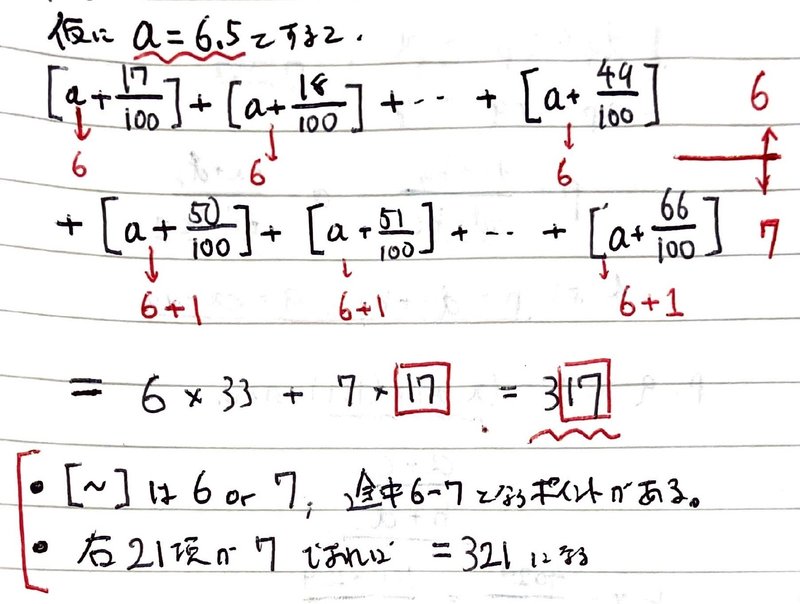 仮に a = 6.5 とすると.
[a + 17/100] + [a + 18/100] + ‥ + [a + 49/100] 6
6 6 6
+ [a + 50/100] + [a + 51/100] + ‥ + [a + 66/100] 7
6+1 6+1 6+1
= 6 × 33 + 7 × 17 = 317
• [~] は 6 or 7, 途中 6→7 となるポイントがある。
• 右21項が 7 であれば = 321 になる